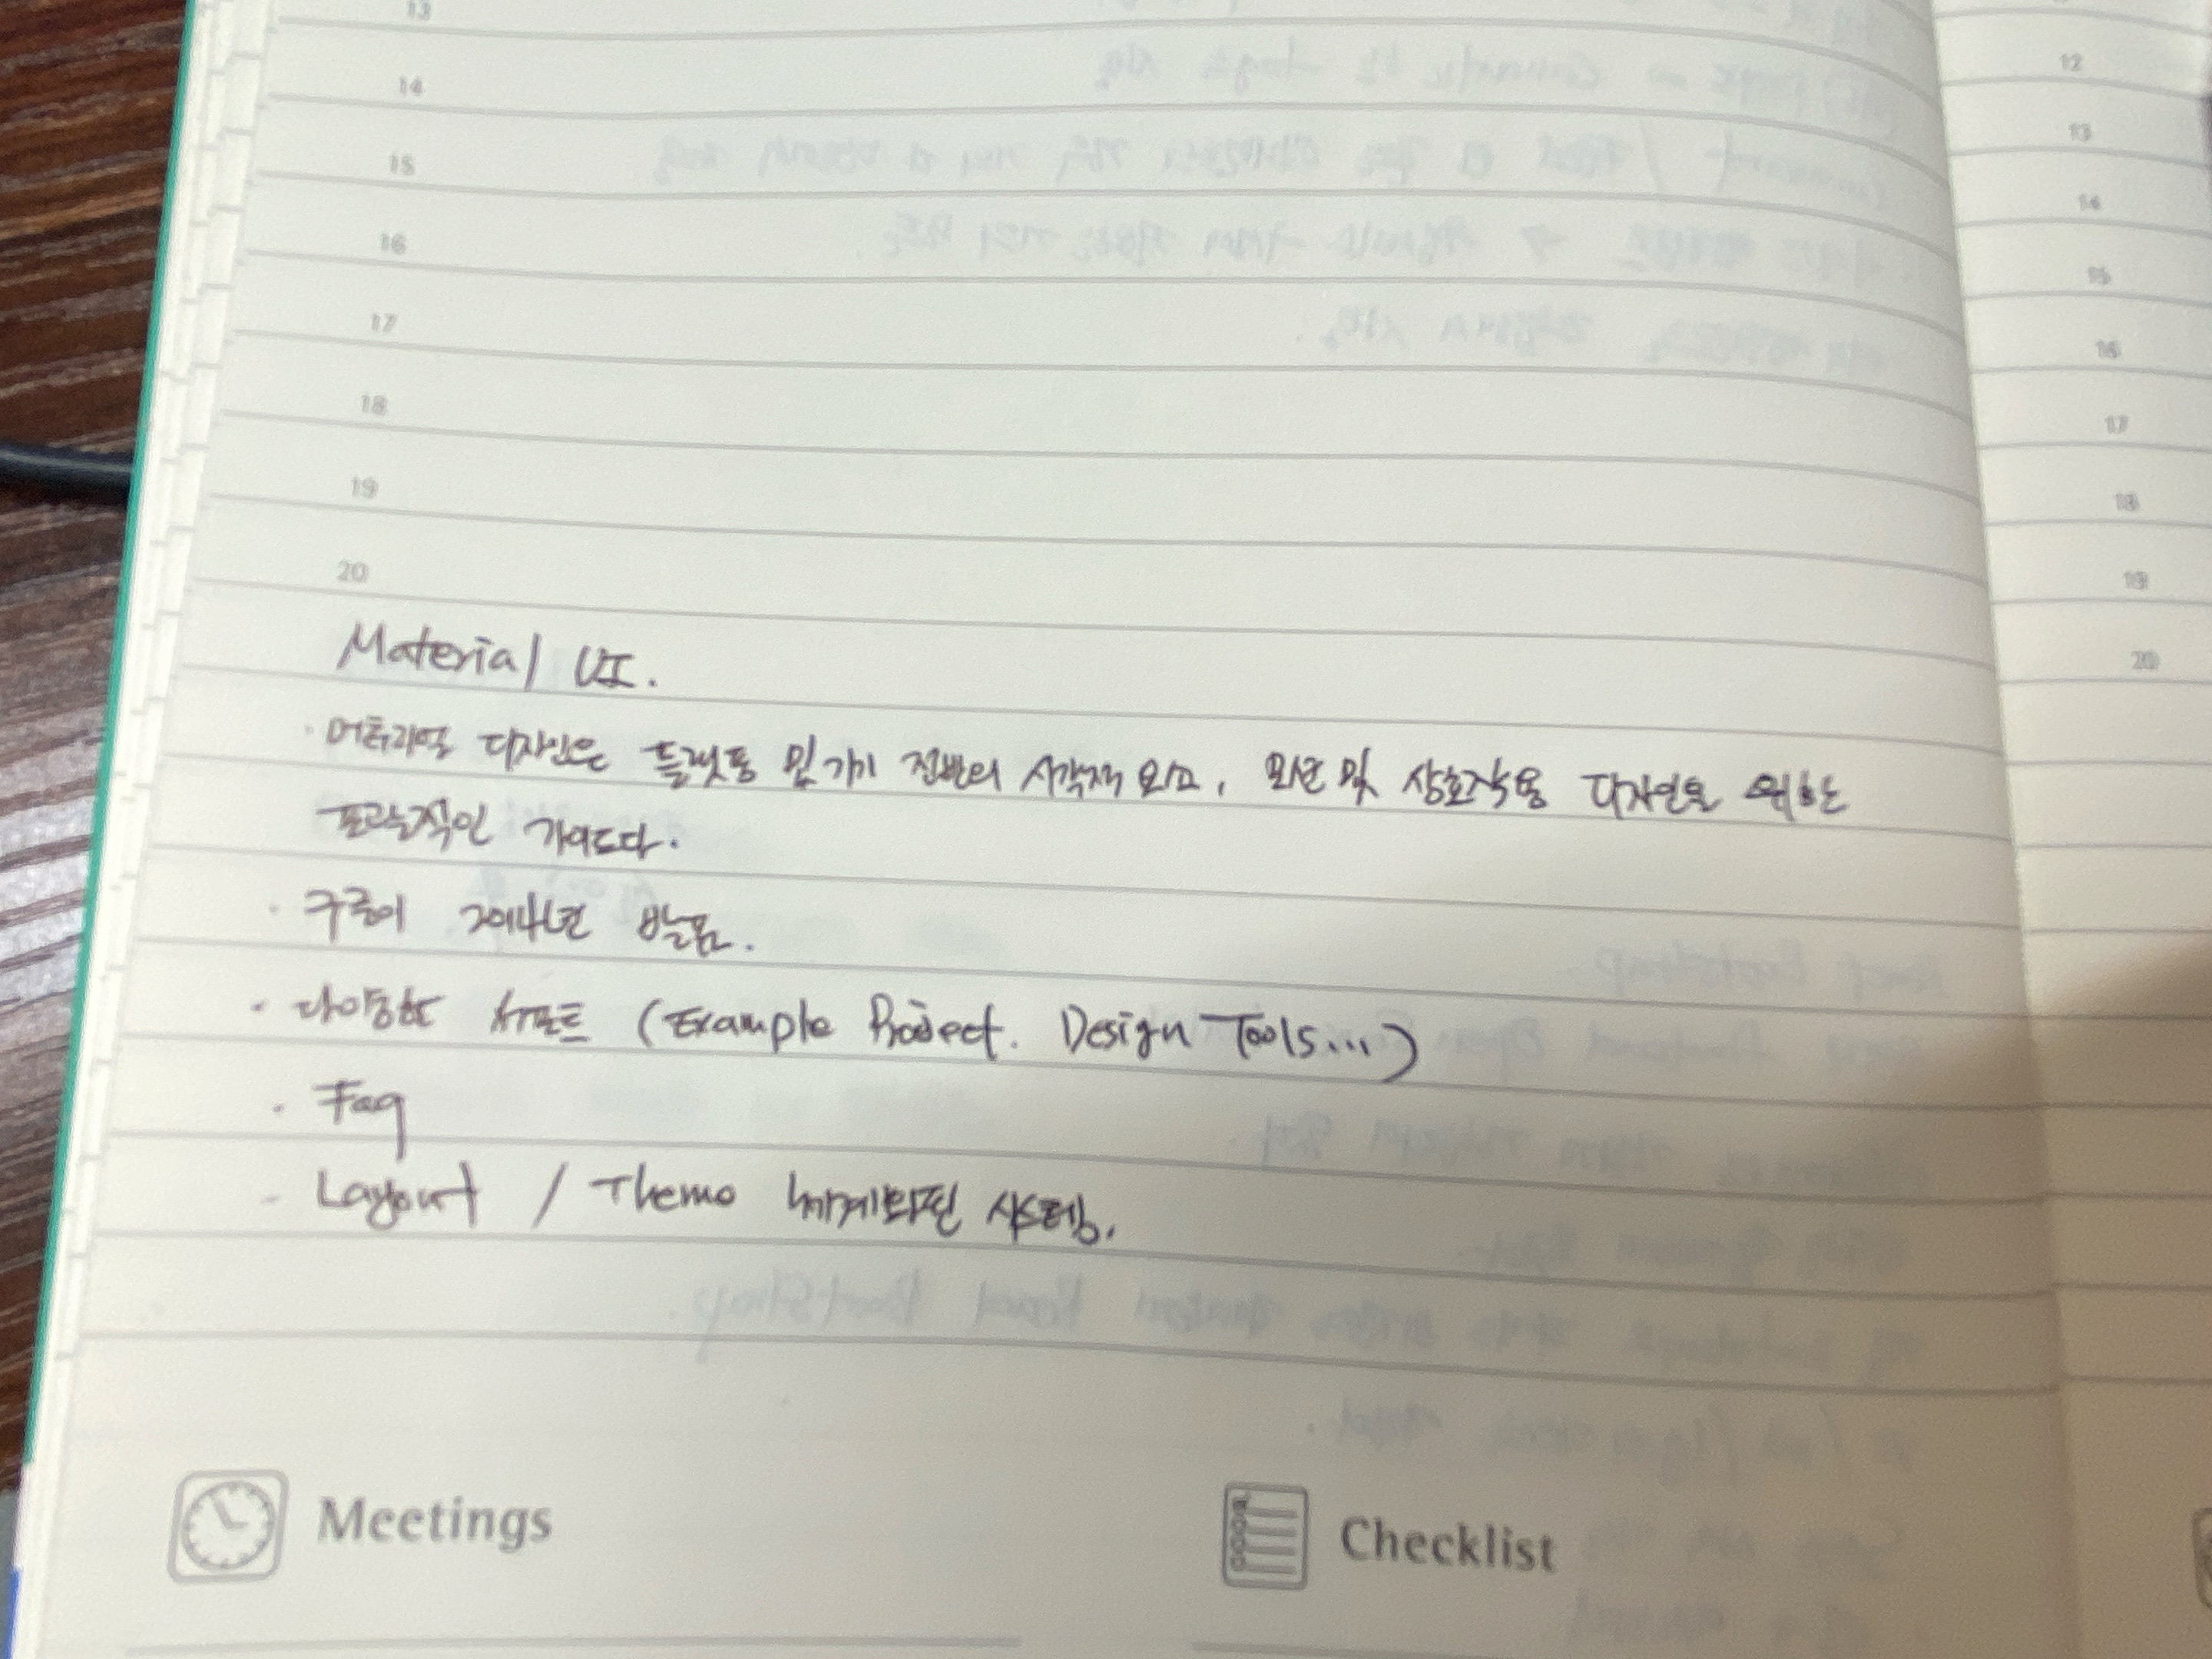 13
14
15
16
17
18
19
20
Material UI.
· 머터리얼 디자인은 플랫폼 및 기기 전반의 시각적 요소, 모션 및 상호작용 디자인을 위한
포괄적인 가이드다.
· 구글이 2014년 발표.
· 다양한 서포트 (Example Project. Design Tools...)
· Faq
- Layout / Theme 체계화된 시스템.
Meetings
Checklist
12
13
14
15
16
17
18
19
20